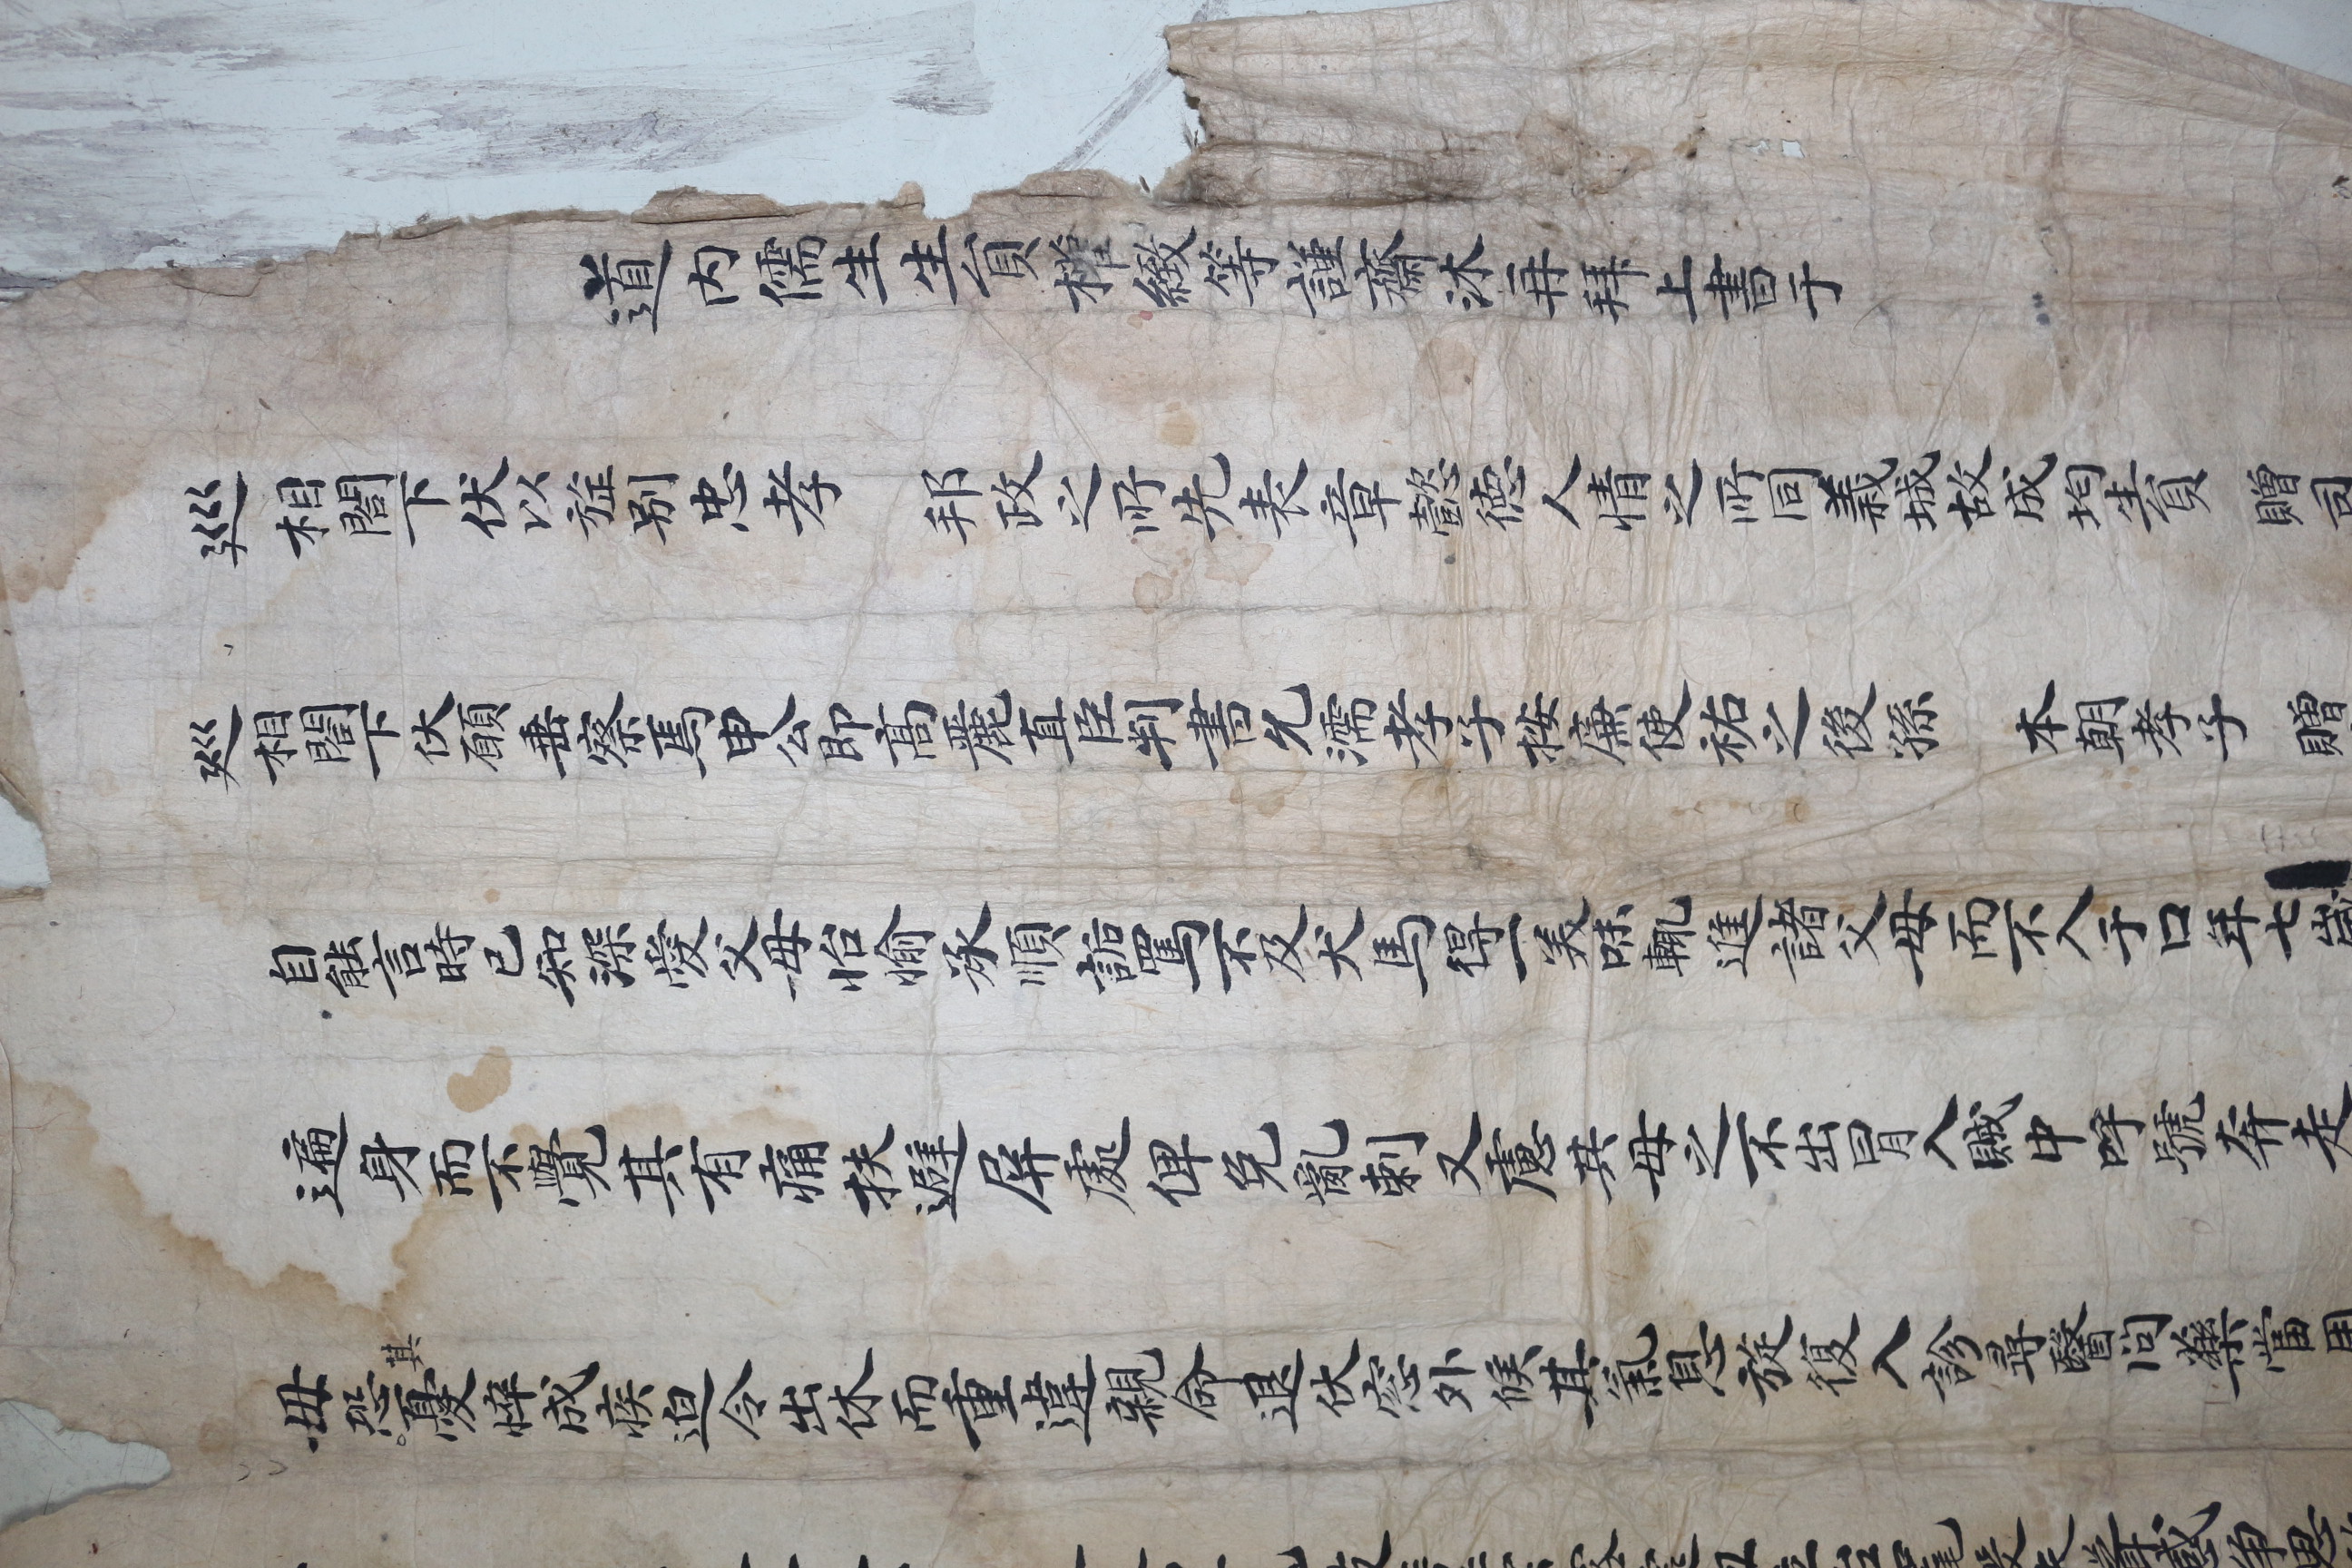 道內儒生生員權緻等謹齋沐再拜上書于
巡相閤下伏以旌別忠孝 邦政之所先表章懿德人情之所同義城故成均生員 贈司
巡相閤下伏願垂察焉申公卽高麗直臣判書允濡孝子按廉使祐之後孫 本朝孝子 贈
自能言時已知深愛父母怡愉承順詬罵不及犬馬得一美味輒進諸父母而不入于口年七歲
遍身而不覺其有痛扶避屏處俾免亂刺又慮其母之不出冒入賊中呼號奔走
母恐其憂悴成疾迫令出休而重違親命退伏窓外候其氣息旋復入診尋醫問藥嘗用